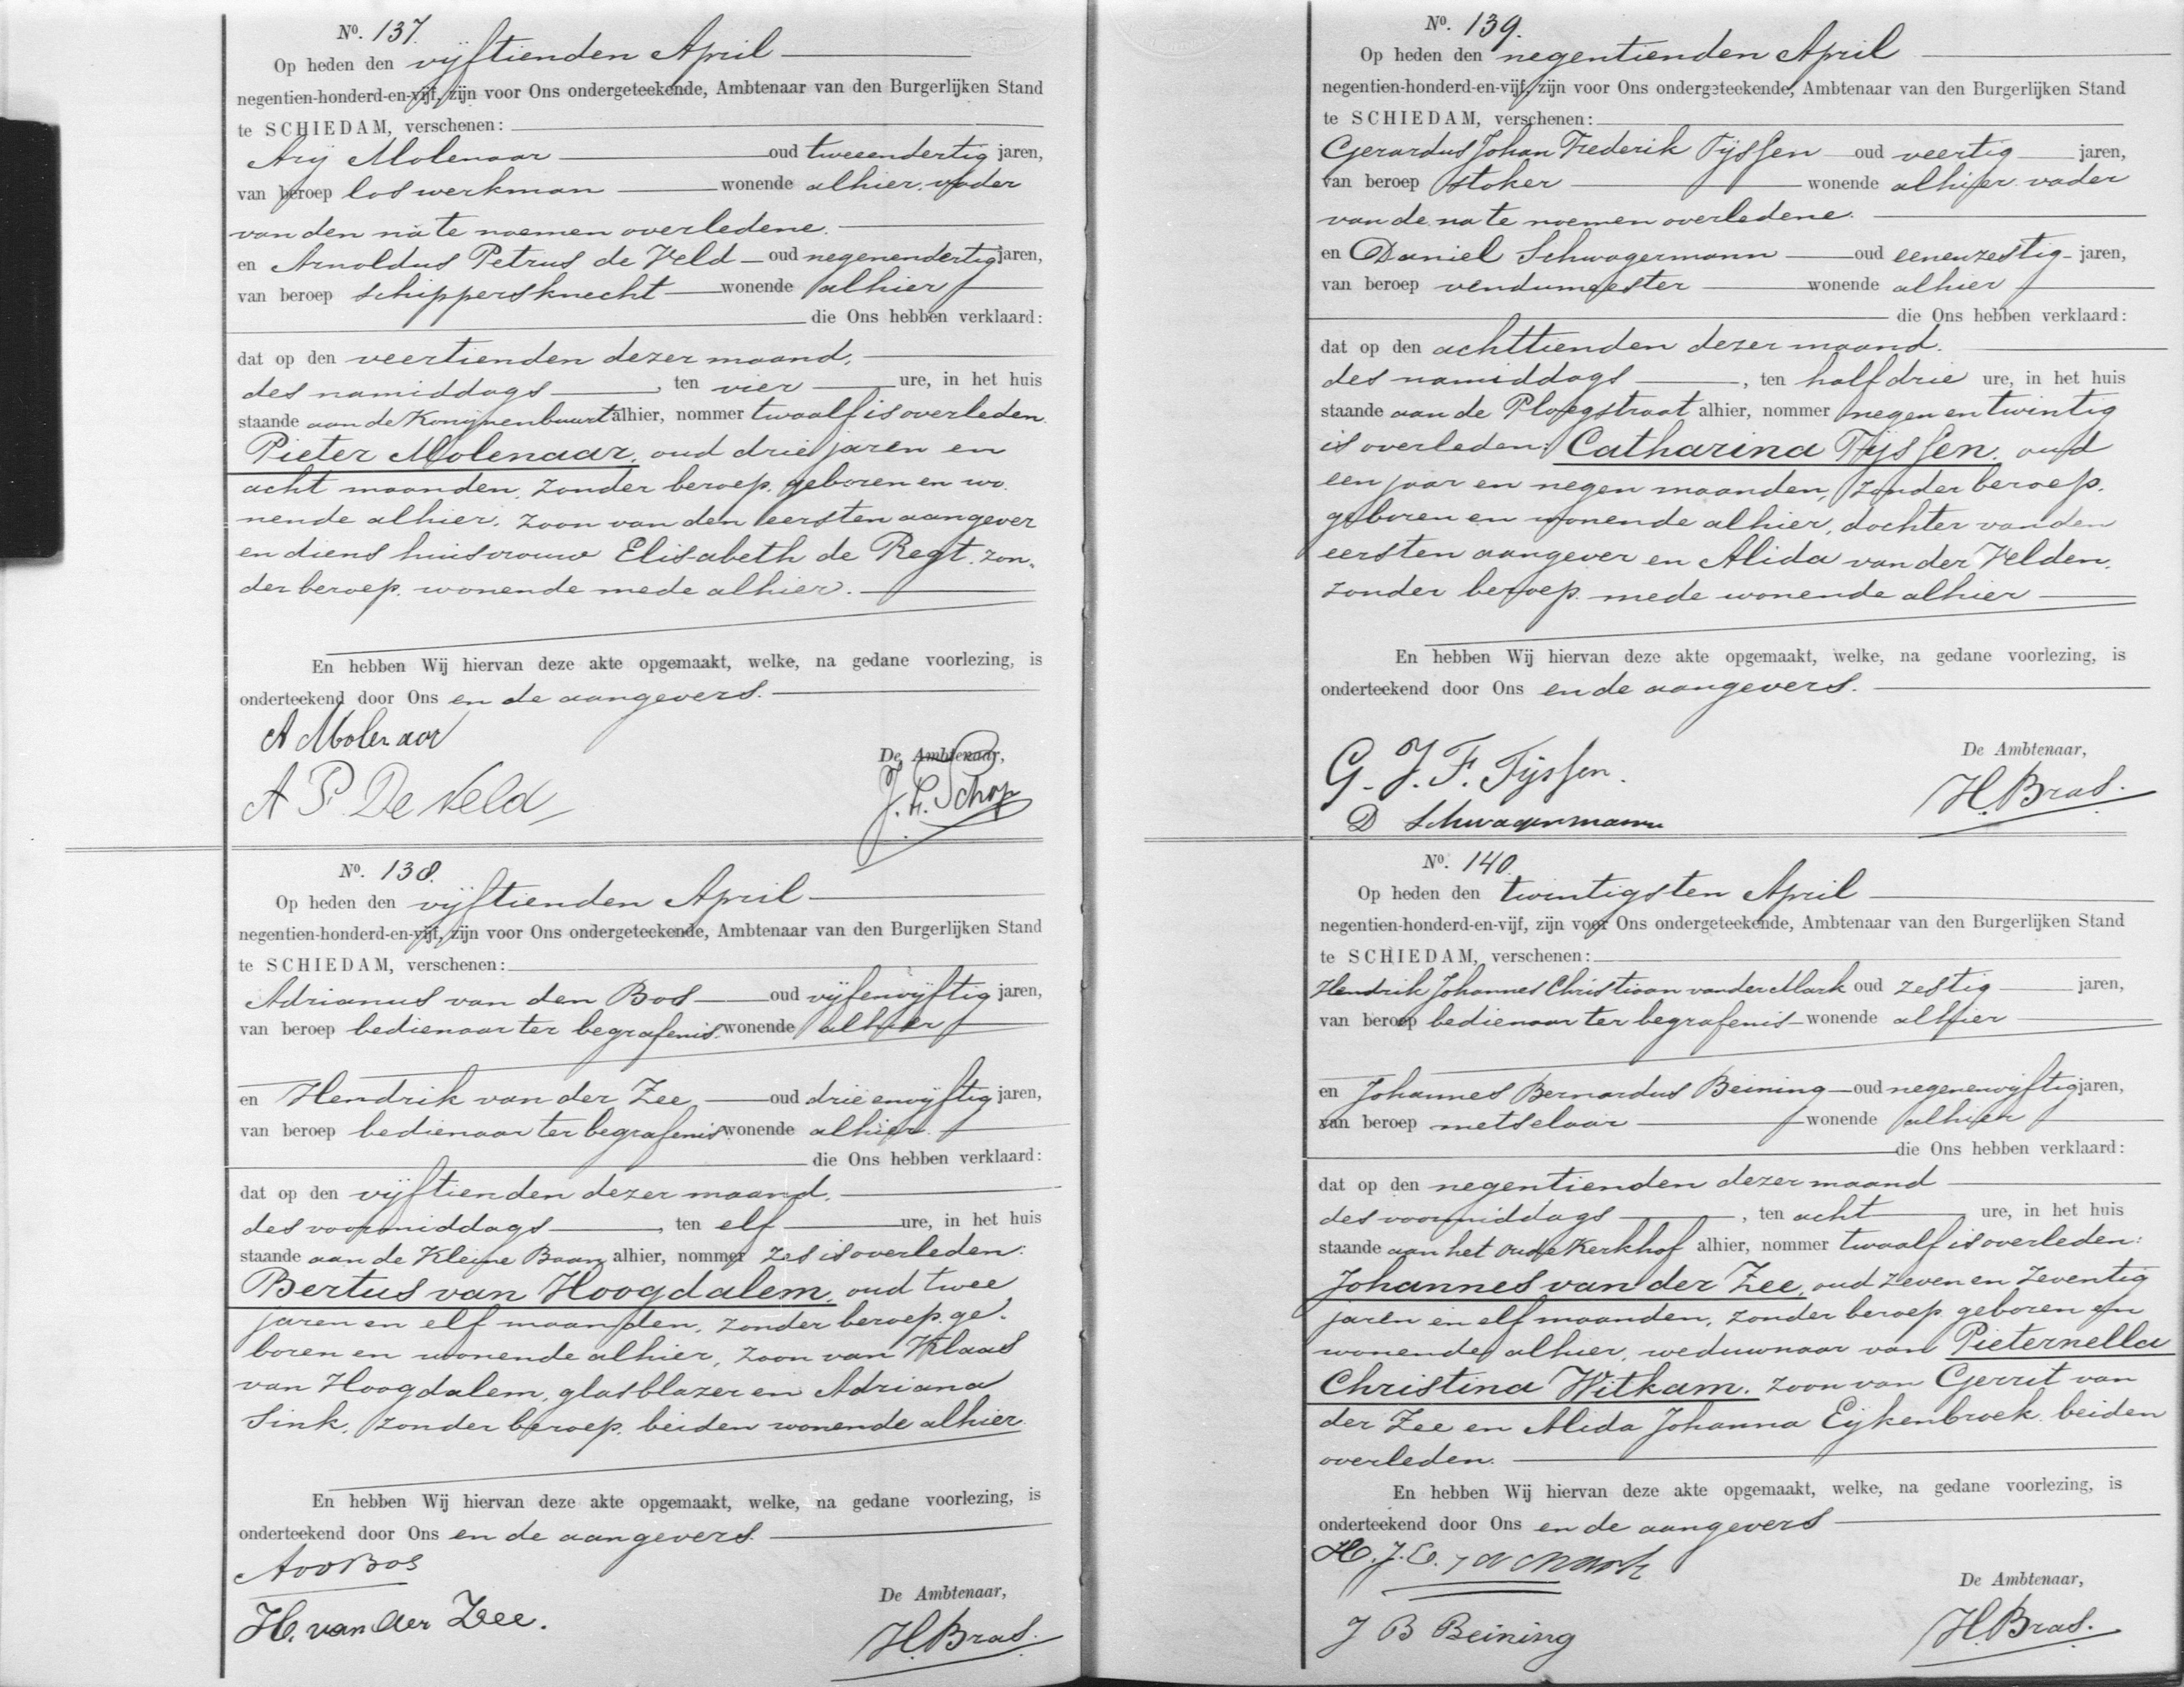 No. 137.
Op heden den vijftienden April
negentien-honderd-en-vijf, zijn voor Ons ondergeteekende, Ambtenaar van den Burgerlijken Stand
te SCHIEDAM, verschenen:
Arij Molenaar oud tweeendertig jaren,
van beroep los werkman wonende alhier, vader
van den na te noemen overledene.
en Arnoldus Petrus de Veld oud negenendertig jaren,
van beroep schippersknecht wonende alhier
die Ons hebben verklaard:
dat op den veertienden dezer maand,
des namiddags, ten vier ure, in het huis
staande aan de Konijnenbuurt alhier, nommer twaalf is overleden
Pieter Molenaar, oud drie jaren en
acht maanden, zonder beroep, geboren en wo-
nende alhier, zoon van den eersten aangever
en diens huisvrouw Elisabeth de Regt, zon-
der beroep, wonende mede alhier.
En hebben Wij hiervan deze akte opgemaakt, welke, na gedane voorlezing, is
onderteekend door Ons en de aangevers.
A Molenaar
De Ambtenaar,
A P. De Veld
Schop
No. 138.
Op heden den vijftienden April
negentien-honderd-en-vijf, zijn voor Ons ondergeteekende, Ambtenaar van den Burgerlijken Stand
te SCHIEDAM, verschenen:
Adrianus van den Bos oud vijfenvijftig jaren,
van beroep bedienaar ter begrafenis wonende alhier
en Hendrik van der Zee, oud drieenvijftig jaren,
van beroep bedienaar ter begrafenis wonende alhier.
die Ons hebben verklaard:
dat op den vijftienden dezer maand,
des voormiddags, ten elf ure, in het huis
staande aan de Kleine Baan alhier, nommer zes is overleden:
Bertus van Hoogdalem, oud twee
jaren en elf maanden, zonder beroep, ge-
boren en wonende alhier, zoon van Klaas
van Hoogdalem, glasblazer en Adriana
Sink, zonder beroep, beiden wonende alhier.
En hebben Wij hiervan deze akte opgemaakt, welke, na gedane voorlezing, is
onderteekend door Ons en de aangevers.
AvdBos
De Ambtenaar,
H. van der Zee.
H. Bras.
No. 139.
Op heden den negentienden April
negentien-honderd-en-vijf, zijn voor Ons ondergeteekende, Ambtenaar van den Burgerlijken Stand
te SCHIEDAM, verschenen:
Gerardus Johan Frederik Tijssen oud veertig jaren,
van beroep stoker wonende alhier vader
van de na te noemen overledene.
en Daniel Schwagermann oud eenenzestig jaren,
van beroep vendumeester wonende alhier
die Ons hebben verklaard:
dat op den achttienden dezer maand.
des namiddags, ten half drie ure, in het huis
staande aan de Ploegstraat alhier, nommer negen en twintig
is overleden: Catharina Tijssen, oud
een jaar en negen maanden, zonder beroep,
geboren en wonende alhier, dochter van den
eersten aangever en Alida van der Velden,
zonder beroep mede wonende alhier
En hebben Wij hiervan deze akte opgemaakt, welke, na gedane voorlezing, is
onderteekend door Ons en de aangevers.
De Ambtenaar,
G. J. F. Tijssen.
H. Bras.
D Schwagermann
No. 140.
Op heden den twintigsten April
negentien-honderd-en-vijf, zijn voor Ons ondergeteekende, Ambtenaar van den Burgerlijken Stand
te SCHIEDAM, verschenen:
Hendrik Johannes Christiaan van der Mark oud zestig jaren,
van beroep bedienaar ter begrafenis wonende alhier
en Johannes Bernardus Beining oud negenenvijftig jaren,
van beroep metselaar wonende alhier
die Ons hebben verklaard:
dat op den negentienden dezer maand
des voormiddags, ten acht ure, in het huis
staande aan het oude Kerkhof alhier, nommer twaalf is overleden:
Johannes van der Zee, oud zeven en zeventig
jaren en elf maanden, zonder beroep geboren en
wonende alhier, weduwnaar van Pieternella
Christina Witkam. zoon van Gerrit van
der Zee en Alida Johanna Eijkenbroek beiden
overleden.
En hebben Wij hiervan deze akte opgemaakt, welke, na gedane voorlezing, is
onderteekend door Ons en de aangevers
H. J. C. v d Mark
De Ambtenaar,
J B Beining
H. Bras.